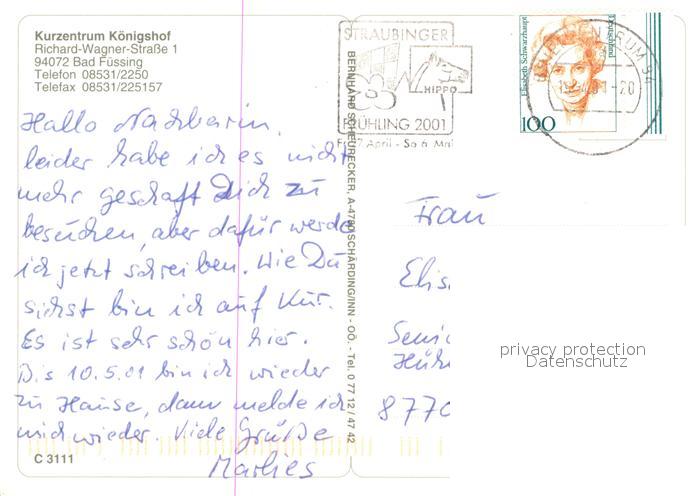 Kurzentrum Königshof
Richard-Wagner-Straße 1
94072 Bad Füssing
Telefon 08531/2250
Telefax 08531/225157
Hallo Nachbarin,
leider habe ich es nicht
mehr geschaft Dich zu
besuchen, aber dafür werde
ich jetzt schreiben. Wie Du
siehst bin ich auf Kur.
Es ist sehr schön hier.
Bis 10.5.01 bin ich wieder
zu Hause, dann melde ich
mich wieder. Viele Grüße
Marlies
C 3111
BERNHARD SCHEURECKER, A-4780 SCHÄRDING/INN - OÖ. - Tel. 0 77 12 / 47 42
STRAUBINGER
HIPPO
FRÜHLING 2001
April - So 6. Mai
Elisabeth Schwarzhaupt
Deutschland
100
BRIEFZENTRUM 94
Frau
Elis
Seni
877
privacy protection
Datenschutz